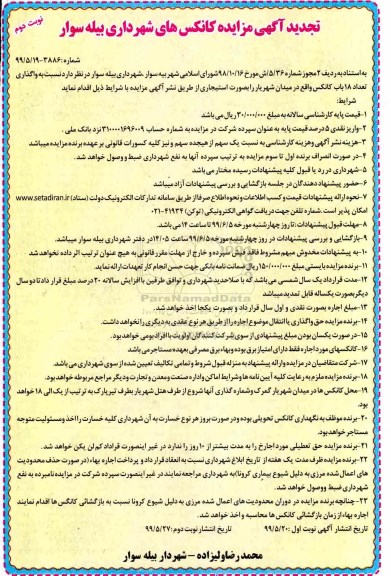 نوبت دوم
تجدید آگهی مزایده کانکس های شهرداری بیله سوار
شماره: ۳۸۸۶-۹۹/۵/۱۹
به استناد به ردیف ۲ مجوز شماره ۵/۳۶/ش مورخ ۹۸/۱۰/۱۶ شورای اسلامی شهر بیله سوار، شهرداری بیله سوار در نظر دارد نسبت به واگذاری
تعداد ۱۸ باب کانکس واقع در میدان شهریار را بصورت استیجاری از طریق نشر آگهی مزایده با شرایط ذیل اقدام نماید
شرایط:
۱-قیمت پایه کارشناسی سالانه به مبلغ ۳۰/۰۰۰/۰۰۰ ریال می باشد
۲-واریز نقدی ۵ درصد قیمت پایه به عنوان سپرده شرکت در مزایده به شماره حساب ۳۱۰۰۰۰۱۶۹۶۰۰۹ نزد بانک ملی .
۳-هزینه نشر آگهی وهزینه کارشناسی به نسبت یک سهم از هیجده سهم و نیز کلیه کسورات قانونی بر عهده برنده مزایده میباشد
۴-در صورت انصراف برنده اول تا سوم مزایده به ترتیب سپرده آنها به نفع شهرداری ضبط و وصول خواهد شد.
۵-شهرداری در رد یا قبول کلیه پیشنهادات رسیده مختار می باشد
۶-حضور پیشنهاد دهندگان در جلسه بازگشایی و بررسی پیشنهادات آزاد میباشد
۷-نحوه ارائه پیشنهادات قیمت و کسب اطلاعات و نحوه اطلاع صرفا از طریق سامانه تدارکات الکترونیک دولت (ستاد) www.setadiran.ir
امکان پذیر است.شماره تلفن جهت دریافت گواهی الکترونیکی (توکن) ۴۱۹۳۴-۰۲۱
۸-مهلت قبول پیشنهادات: تا روز چهارشنبه مورخه ۹۹/۶/۵ تا ساعت ۱۴ می باشد.
۹-بازگشایی و بررسی پیشنهادات در روز چهارشنبه مورخه ۹۹/۶/۵ ساعت ۱۴/۰۵ در دفتر شهرداری بیله سوار میباشد.
۱۰-به پیشنهادات مخدوش مبهم مشروط فاقد پیش سپرده و خارج از مهلت مقرر قانونی به هیچ عنوان ترتیب اثر داده نخواهد شد
۱۱-برنده مزایده بایستی مبلغ ۱۵۰/۰۰۰/۰۰۰ ریال ضمانت نامه بانکی جهت حسن انجام کار تعهدات ارائه نماید.
۱۲-مدت قرارداد یک سال شمسی می باشد که با صلاحدید شهرداری و توافق طرفین با افزایش سالانه ۲۰ درصد مبلغ قرارداد تا دو سال
دیگر بصورت یکساله قابل تمدید میباشد
۱۳-مبلغ اجاره بصورت نقدی و اول سال قرارداد و بصورت یکجا اخذ خواهد شد.
۱۴-برنده مزایده حق واگذاری یا انتقال موضوع اجاره را از طریق هر نوع عقدی به دیگری را نخواهد داشت.
۱۵-در صورت یکسان بودن مبلغ پیشنهادی از سوی شرکت کنندگان اولویت با افراد بومی خواهد بود.
۱۶-کانکسهای مورد اجاره فقط دارای امتیاز برق بوده و بهاء برق مصرفی بعهده مستاجر می باشد
۱۷-شرکت متقاضیان در مزایده و ارائه پیشنهاد به منزله قبول شروط و تمامی تکالیف تعیین شده از سوی شهرداری می باشد.
۱۸-برنده مزایده ملزم به رعایت کلیه آیین نامه ها و شرایط اماکن و اداره صنعت و معدن و تجارت و دیگر مراجع مربوطه خواهد بود.
۱۹-محل کانکس ها در میدان شهریار گمرک و شماره گذاری آنها شروع از طرف هتل شهریار بطرف تیرپارک به ترتیب از یک الی ۱۸ خواهد
بود.
۲۰-برنده موظف به نگهداری کانکس تحویلی بوده و در صورت بروز هر نوع خسارت به آن شهرداری کلیه خسارت را اخذ و مسئولیت متوجه
مستاجر خواهد بود.
۲۱-برنده مزایده حق تعطیلی مورد اجارخ را به مدت بیشتر از ۱۰ روز را ندارد در غیر اینصورت قراداد کم لن یکن خواهد شد.
۲۲-برنده مزایده ظرف مدت یک هفته از تاریخ ابلاغ شهرداری نسبت به انعقاد قرارداد و پرداخت اجاره بهاء (در صورت حذف محدودیت
های اعمال شده مرزی به دلیل شیوع بیماری کرونا) به شهرداری مراجعه نمایند در غیر اینصورت سپرده شرکت در مزایده نامبرده به نفع
شهرداری ضبط و وصول خواهد شد.
۲۳-چنانچه برنده مزایده در دوران محدودیت های اعمال شده مرزی به دلیل شیوع کرونا نسبت به بازگشائی کانکس ها اقدام نمایند
اجاره بهاء از زمان بازگشائی کانکس ها محاسبه و اخذ خواهد شد.
تاریخ انتشار آگهی نوبت اول: ۹۹/۵/۲۰ تاریخ انتشار نوبت دوم: ۹۹/۵/۲۷
محمد رضا ولیزاده – شهردار بیله سوار
ParsNamadData